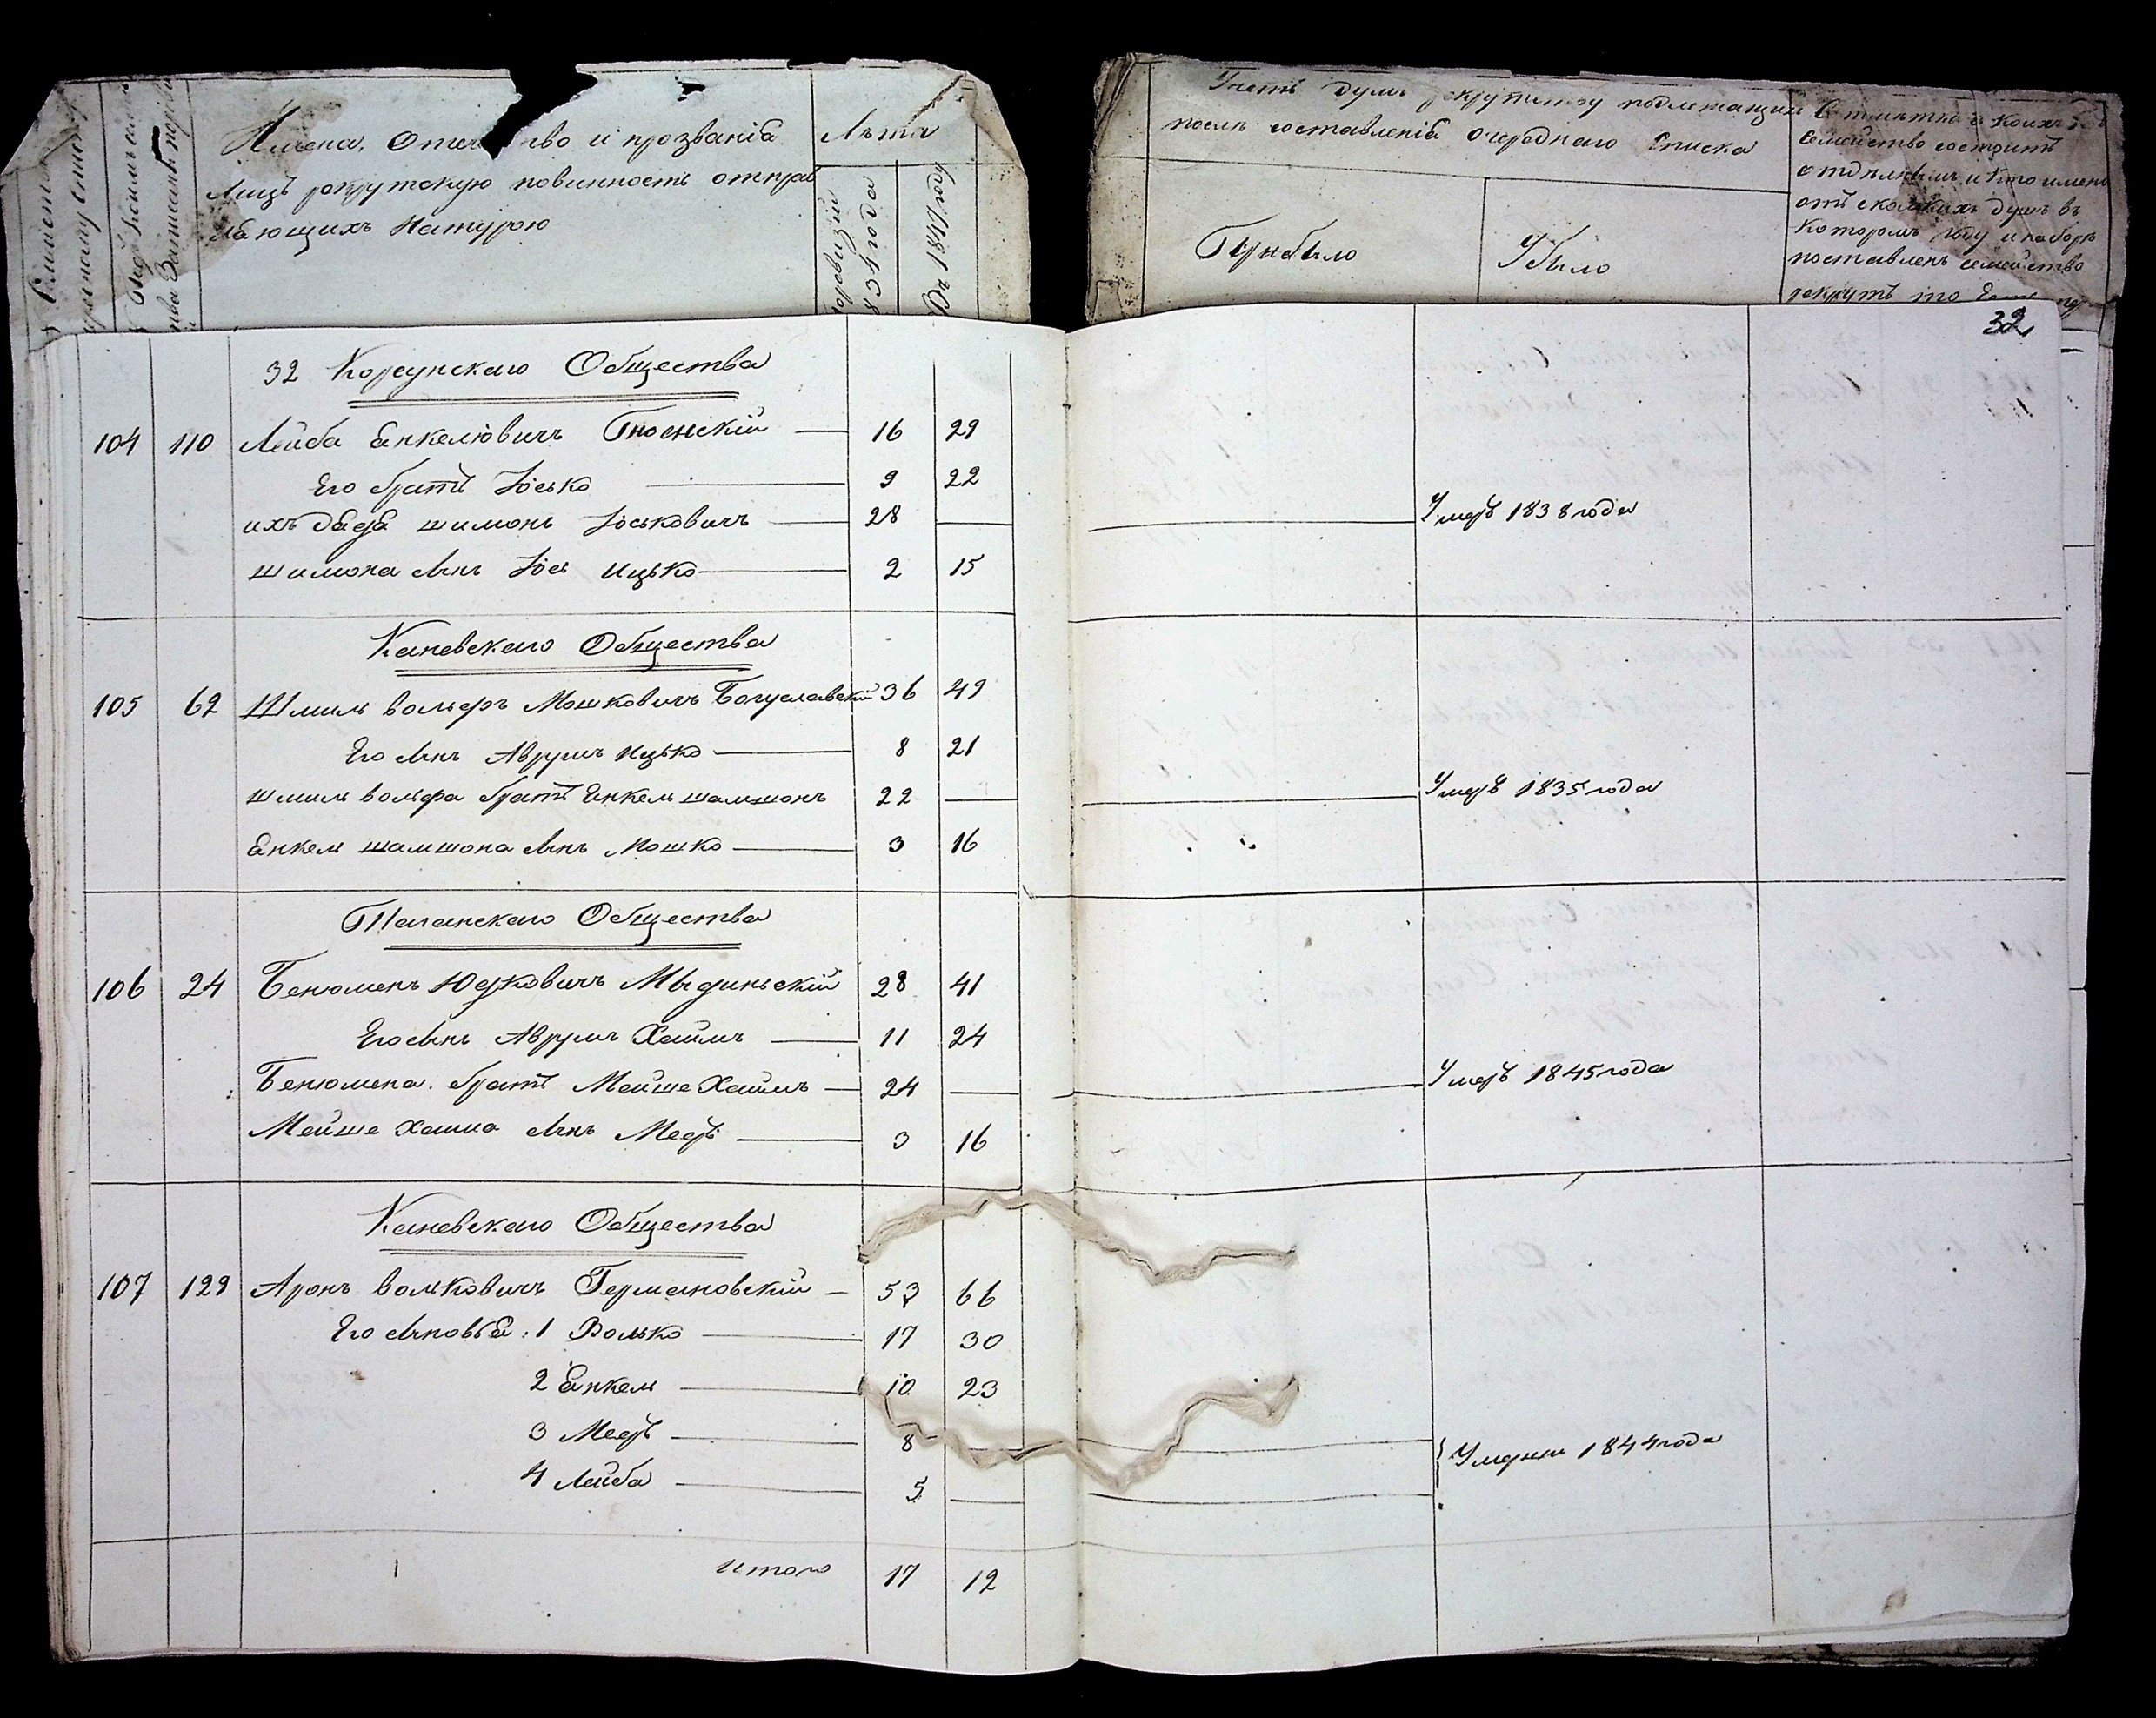 Имена, Отечество и прозванія
Лицъ рекрутскую повинность отправ
ляющихъ Натурою
Лѣта
По ревизіи
834 года
Въ 1847 году
душъ рекрутству подлежащихъ
послѣ составленія Очереднаго Списка
Прибыло
Убыло
Семейство состоитъ
отъ сколькихъ душъ въ
которомъ году и наборѣ
поставленъ семейство
рекрутъ то
32
32 Корсунскаго Общества
104 110 Лейба Янкелювичъ 16 29
Его братъ Іосько 9 22
ихъ дядя шимонъ Іоськовичъ 28 — Умеръ 1838 года
шимона сынъ Іось ицько 2 15
Каневскаго Общества
105 62 Шмиль вольфъ Мошковичъ Богуславскій 36 49
Его сынъ Аврумъ ицько 8 21
шмиль вольфа братъ Янкель шамшонъ 22 — Умеръ 1835 года
Янкель шамшона сынъ Мошко 3 16
Таганскаго Общества
106 24 Бенюменъ Юдковичъ 28 41
Его сынъ Аврумъ Хаимъ 11 24
Бенюмена братъ Мейше Хаимъ 24 — Умеръ 1845 года
Мейше Хаима сынъ Мееръ 3 16
Каневскаго Общества
107 129 Аронъ вольковичъ Германовскій 53 66
Его сыновья: 1 Волько 17 30
2 Янкель 10 23
3 Мееръ 8 — } Умерли 1844 года
4 Лейба 5 —
Итого 17 12